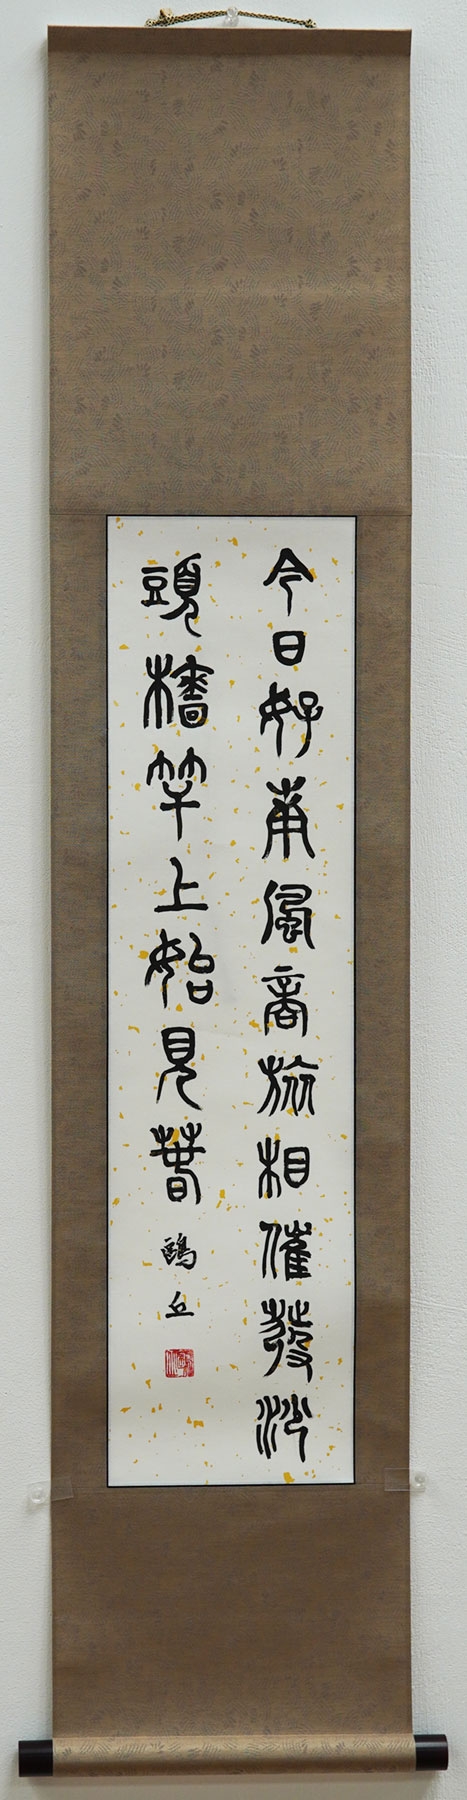 今日好南風商旅相催發沙
頭檣竿上始見萅
鷗丘